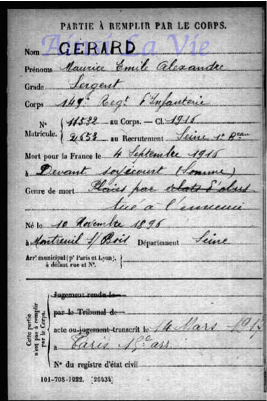 PARTIE À REMPLIR PAR LE CORPS.
Aimé La Vie
Nom GERARD
Prénoms Maurice Emile Alexandre
Grade Sergent
Corps 149e Regt d'Infanterie
N° 11532 au Corps. — Cl. 1916
Matricule. 2553 au Recrutement Seine 1er Bau
Mort pour la France le 4 Septembre 1916
à Devant Soyécourt (Somme)
Genre de mort par éclats d'obus
tué à l'ennemi
Né le 10 Novembre 1896
à Montreuil s/ Bois Département Seine
Arrt municipal (pr Paris et Lyon),
à défaut rue et N°.
Cette partie n'est pas à remplir par le Corps.
Jugement rendu le
par le Tribunal de
acte ou jugement transcrit le 14 Mars 1917
à Paris arr.
N° du registre d'état civil
101-708-1922. [26434]